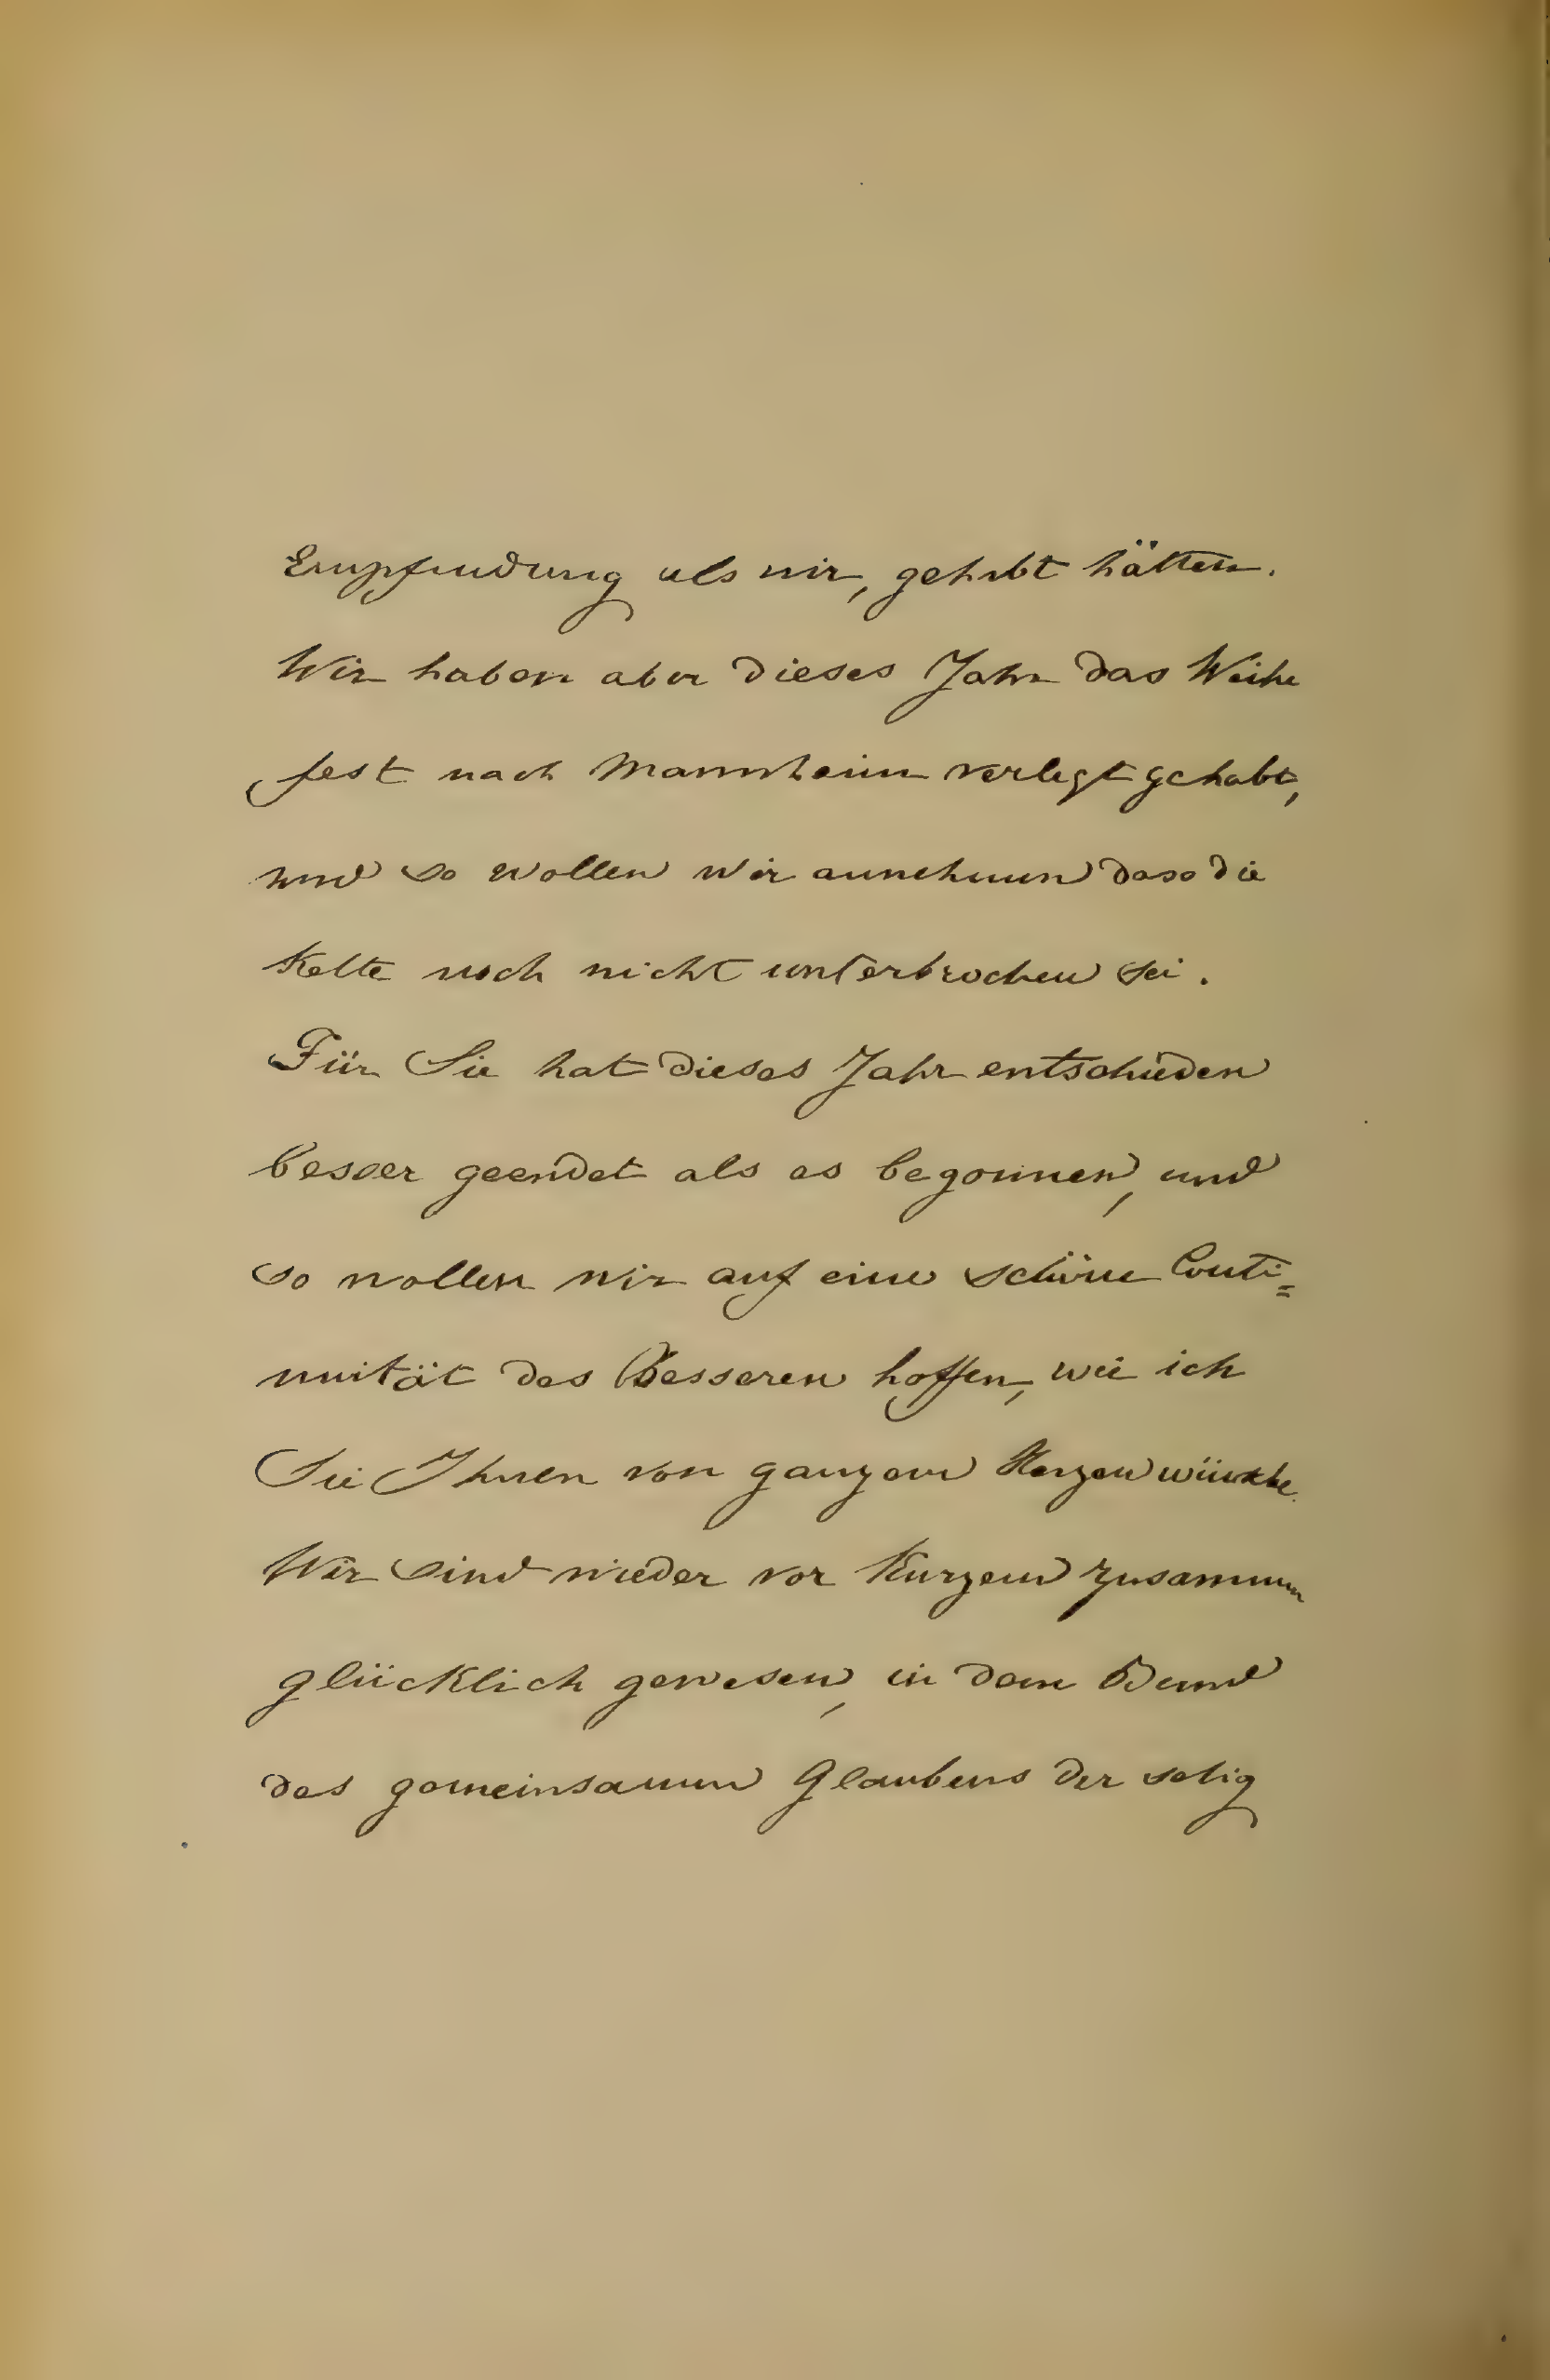 Empfindung als wir, gehabt hätten.
Wir haben aber dieses Jahr das Weihe
fest nach Mannheim verlegt gehabt,
und so wollen wir annehmen dass die
Kette noch nicht unterbrochen sei.
Für Sie hat dieses Jahr entschieden
besser geendet als es begonnen, und
so wollen wir auf eine schöne Conti=
nuität des Besseren hoffen, wie ich
Sie Ihnen von ganzem Herzen wünsche.
Wir sind wieder vor Kurzem zusammen
glücklich gewesen, in dem Bund
des gemeinsamen Glaubens der selig